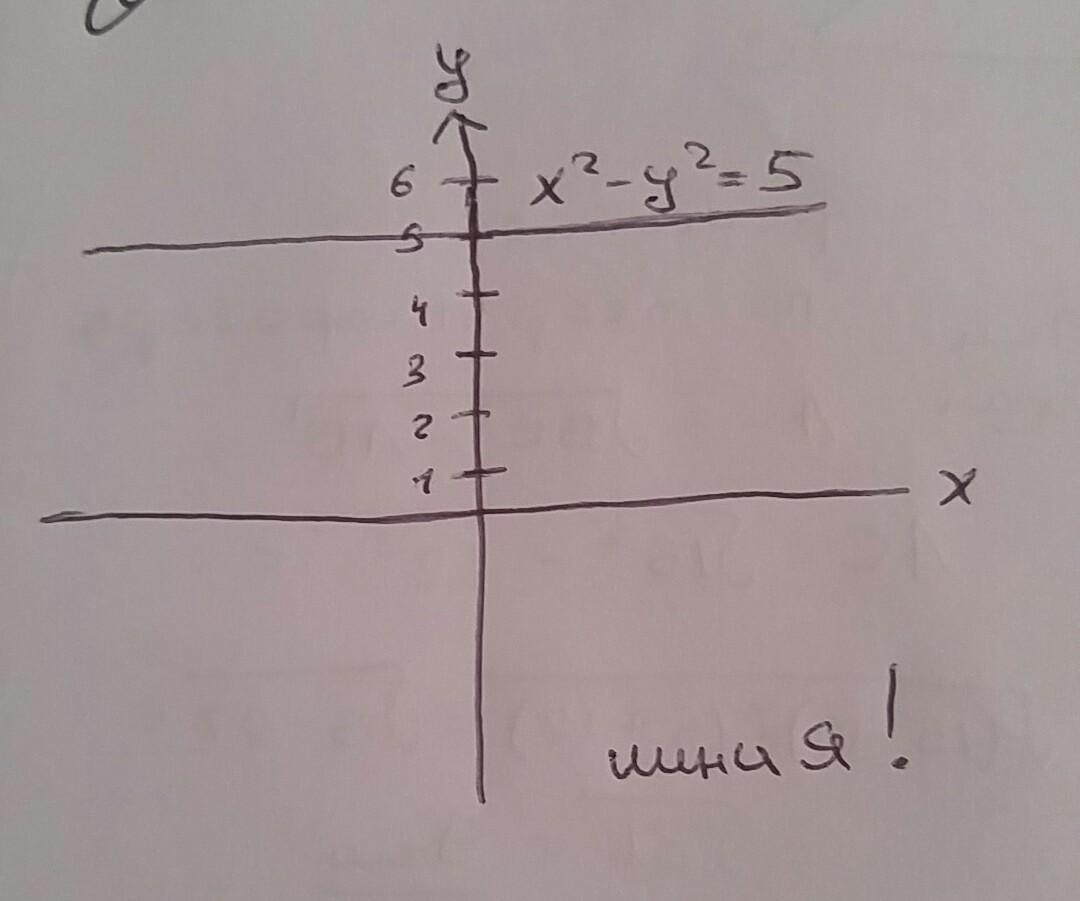 y
6
x² - y² = 5
5
4
3
2
1
x
линия!